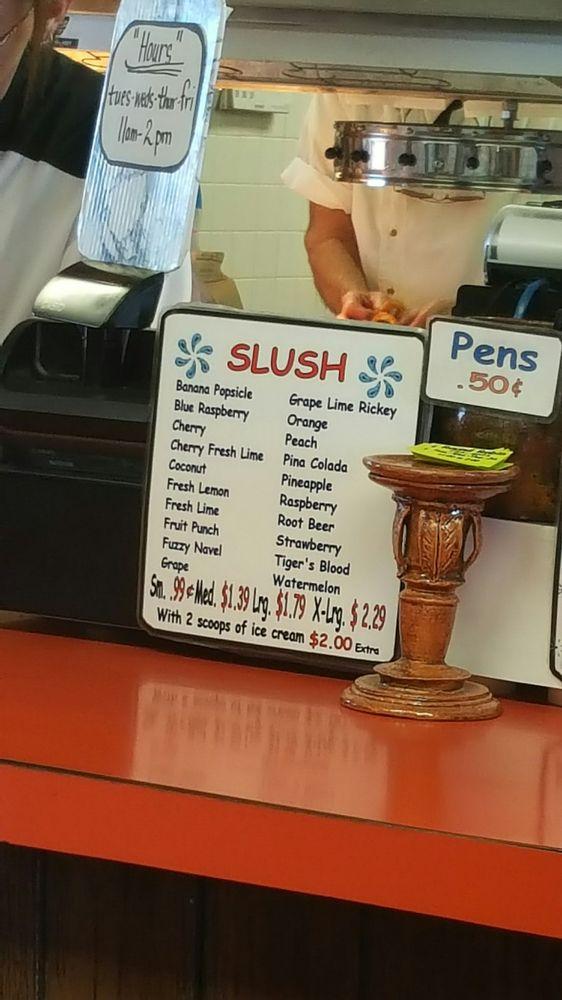 "Hours"
tues-weds-thur-fri
11am-2pm
SLUSH
Banana Popsicle
Blue Raspberry
Cherry
Cherry Fresh Lime
Coconut
Fresh Lemon
Fresh Lime
Fruit Punch
Fuzzy Navel
Grape
Grape Lime Rickey
Orange
Peach
Pina Colada
Pineapple
Raspberry
Root Beer
Strawberry
Tiger's Blood
Watermelon
Sm. .99¢ Med. $1.39 Lrg. $1.79 X-Lrg. $2.29
With 2 scoops of ice cream $2.00 Extra
Pens
.50¢